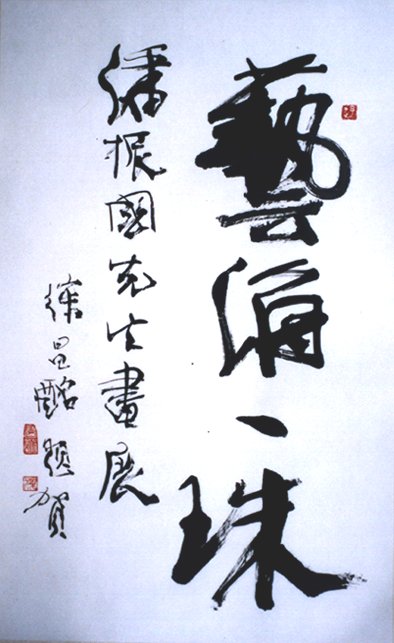 藝海一珠
潘振國先生畫展
徐昌酩題賀